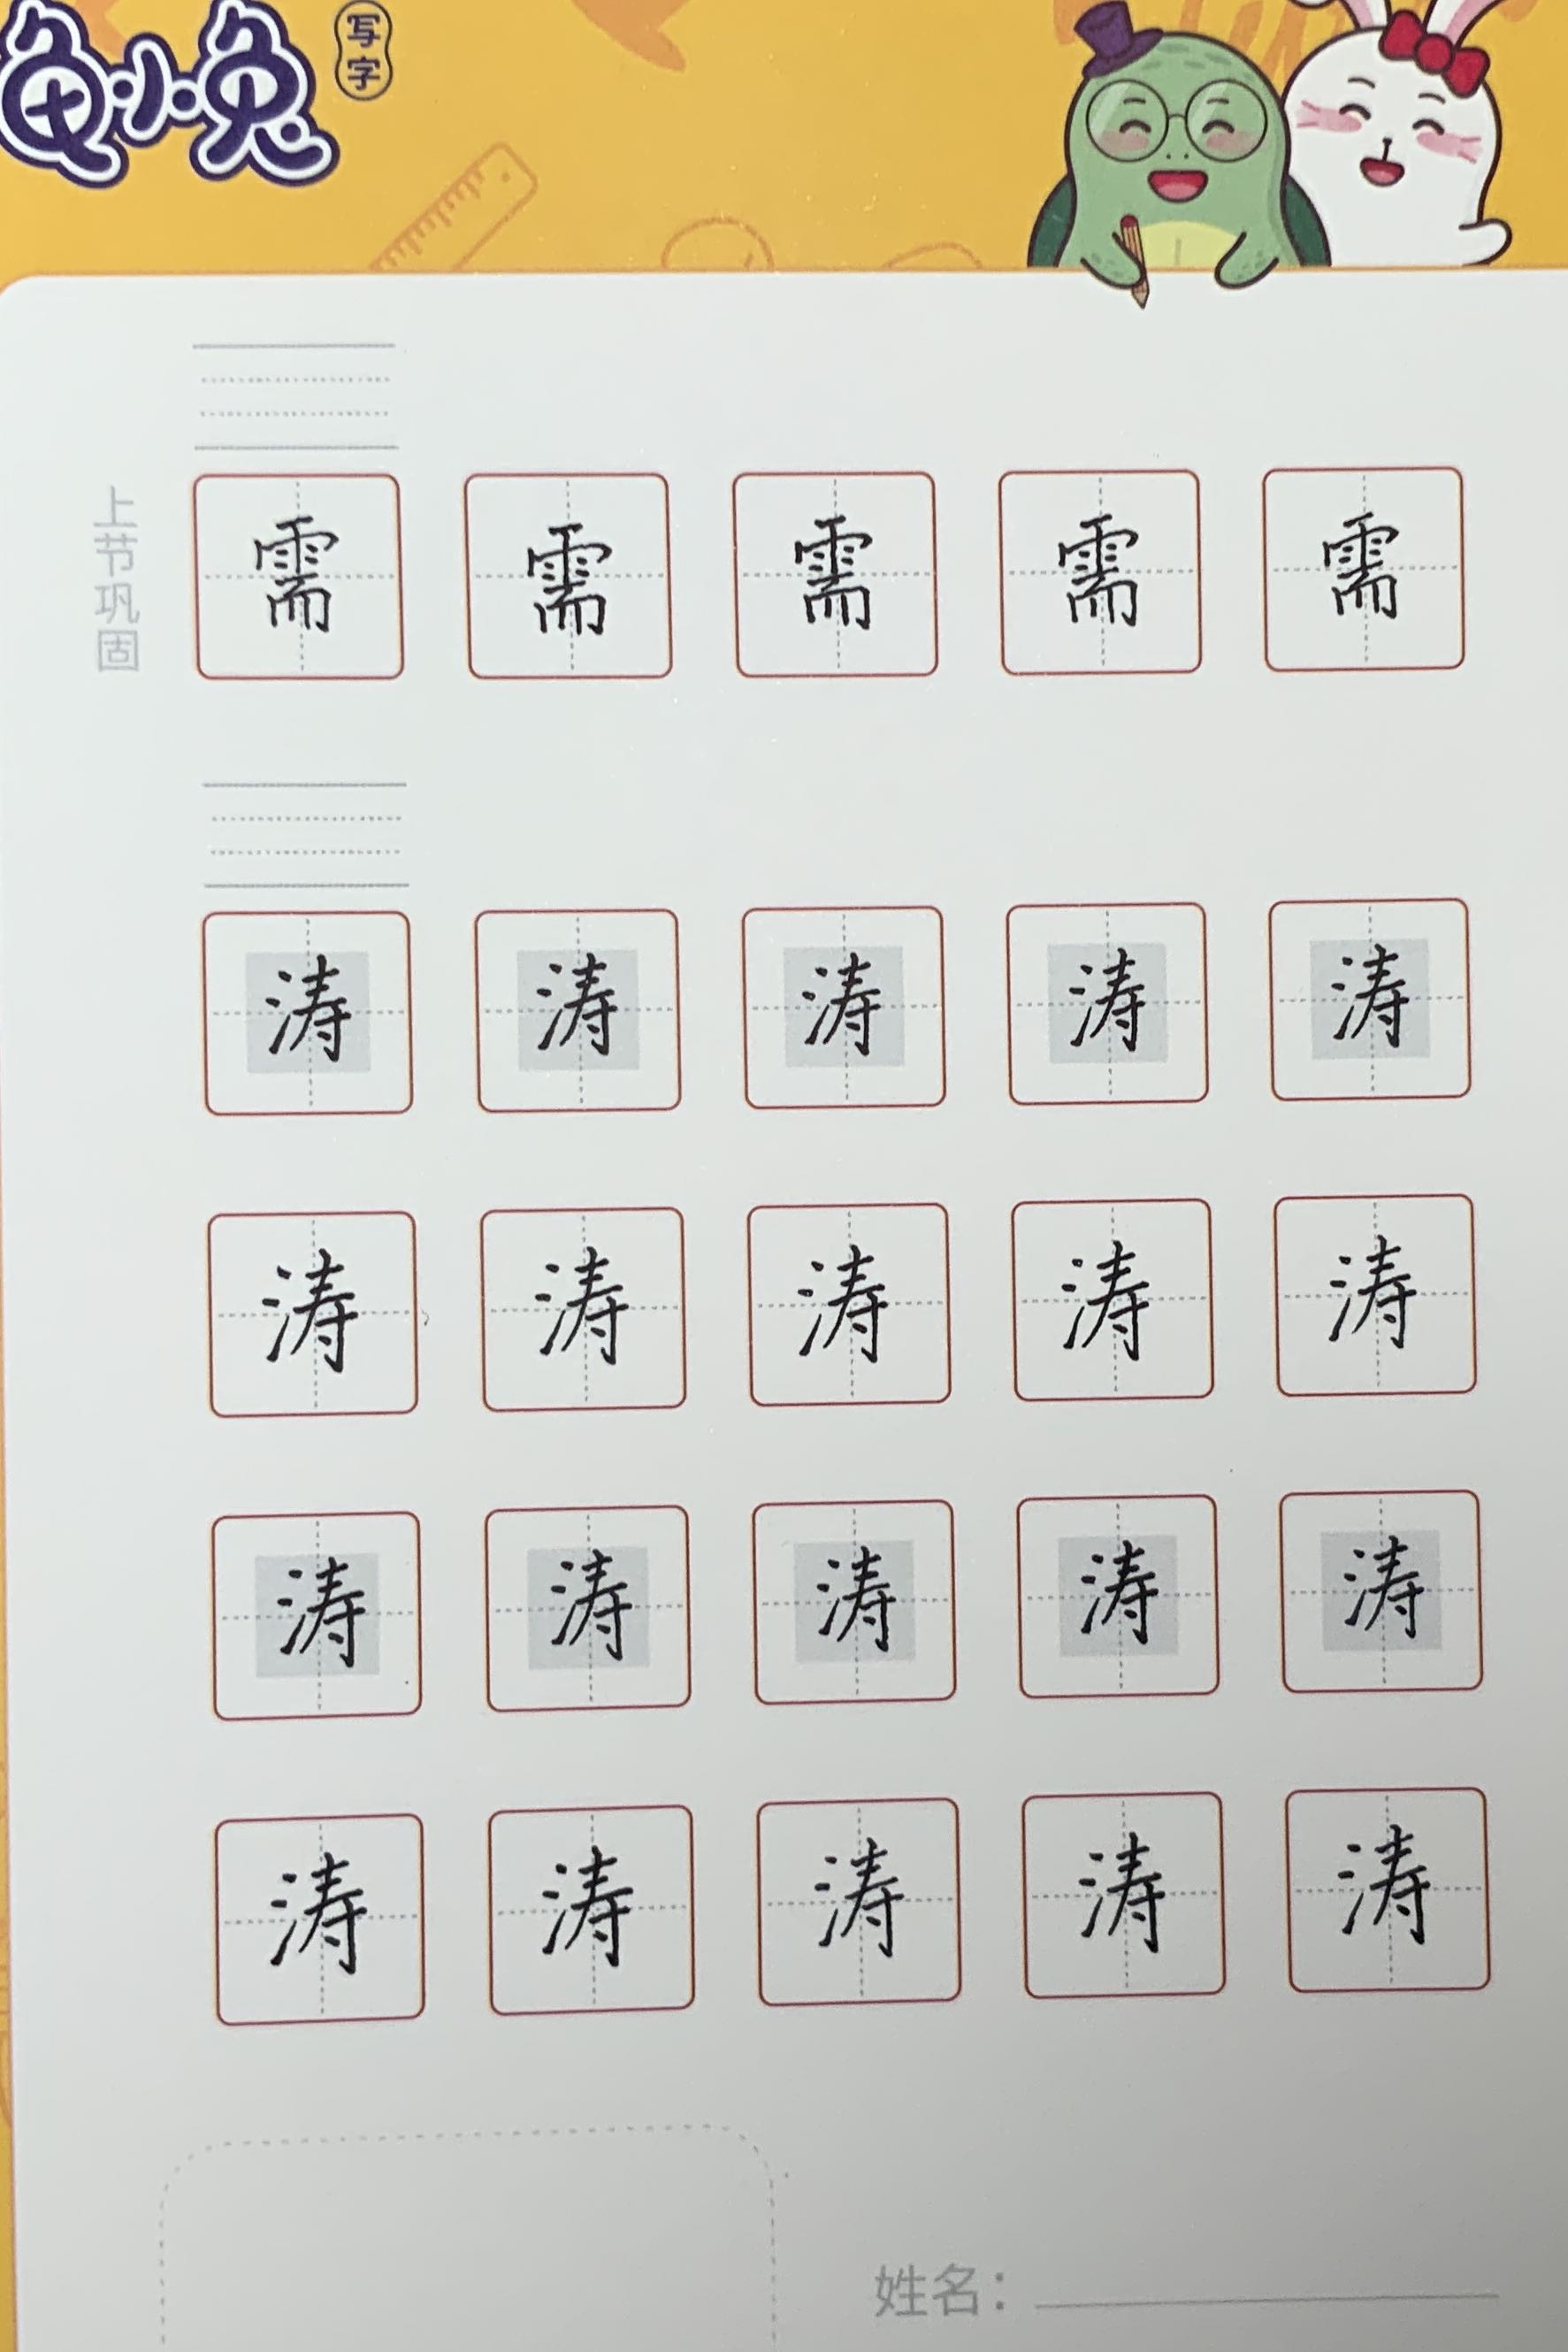 龟小兔
写字
上节巩固
需 需 需 需 需
涛 涛 涛 涛 涛
涛 涛 涛 涛 涛
涛 涛 涛 涛 涛
涛 涛 涛 涛 涛
姓名：